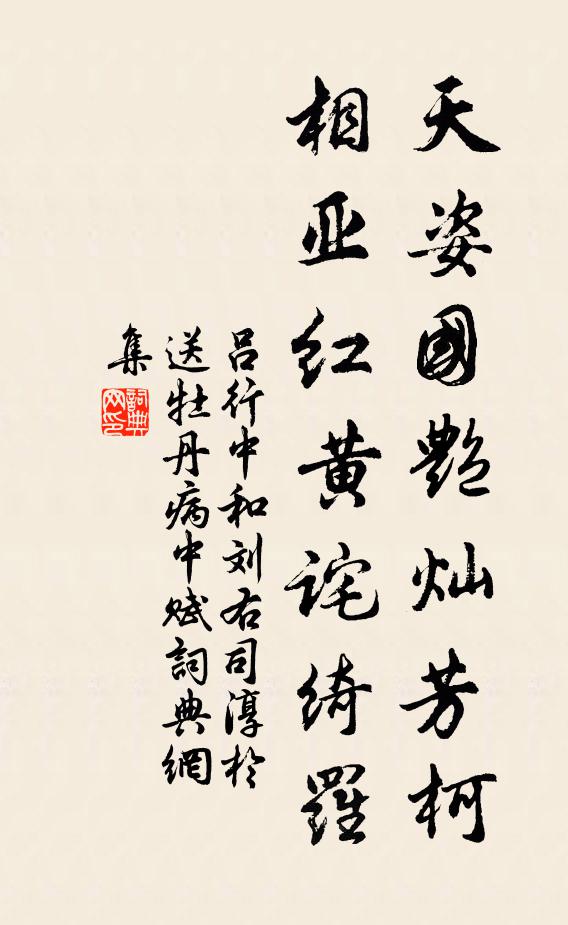 天姿國艷灿芳柯
相亚红黄诧绮羅
吕行中和刘右司淳於
送牡丹病中赋詞典網
集
詞典
网印